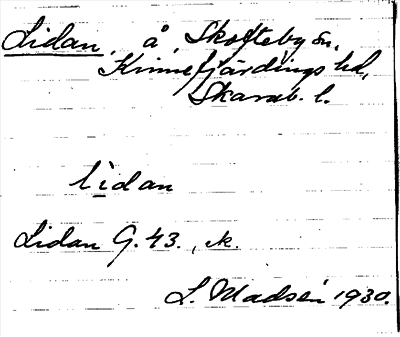 Lidan, å, Skofteby sn,
Kinnefjärdings hd,
Skarab. l.
lidan
Lidan G. 43., ek.
L. Madsén 1930.